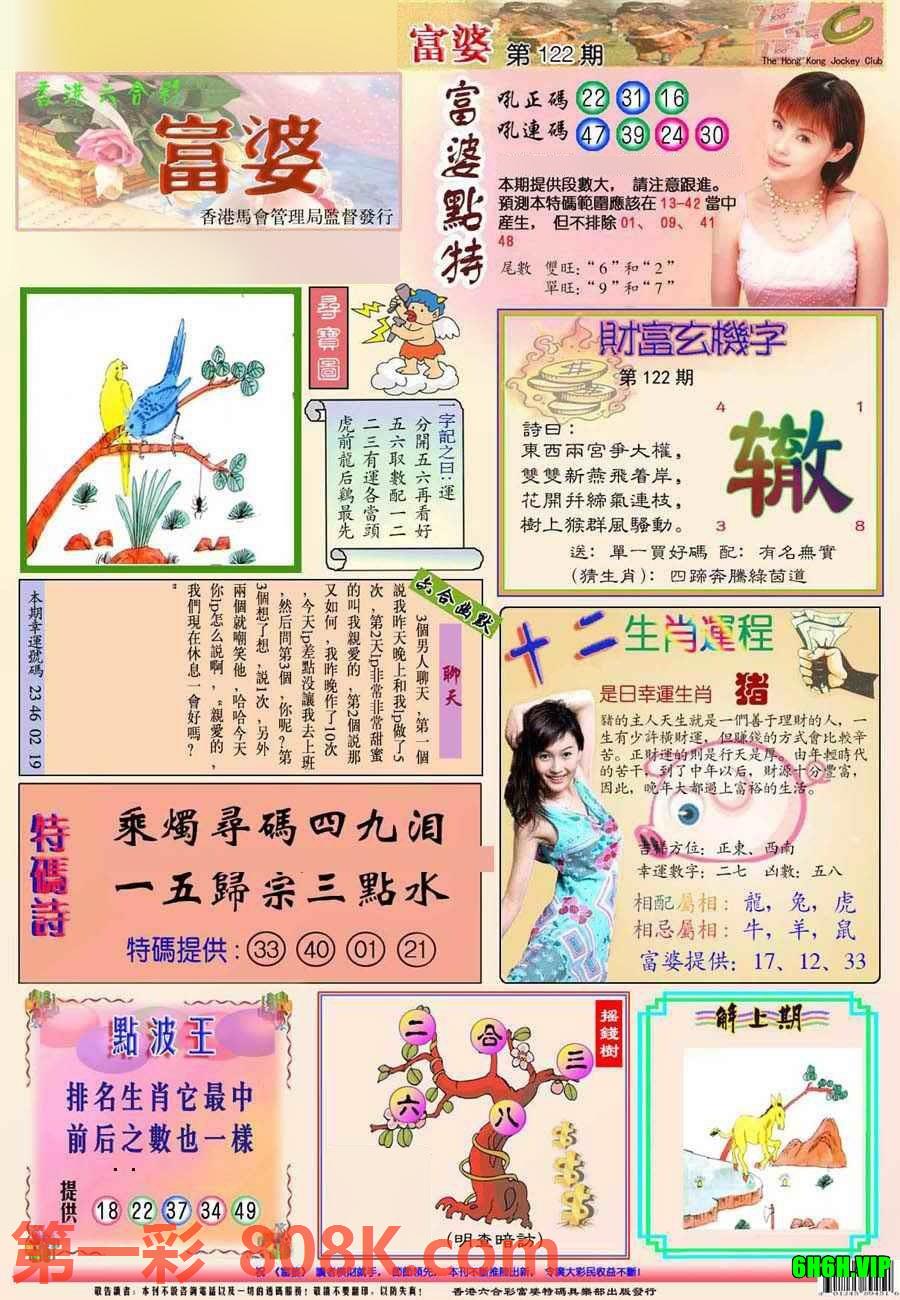 富婆 第122期
The Hong Kong Jockey Club
香港六合彩
富婆
香港馬會管理局監督發行
富婆點特
吼正碼 22 31 16
吼連碼 47 39 24 30
本期提供段數大， 請注意跟進。
預測本特碼範圍應該在 13-42 當中
産生， 但不排除 01、 09、 41
48
尾數 雙旺：“6”和“2”
單旺：“9”和“7”
尋寶圖
一字記之曰：運
分開五六再看好
五六取數配一二
二三有運各當頭
虎前龍后鷄最先
財富玄機字
第122期
4 1
轍
3 8
詩曰：
東西兩宮爭大權，
雙雙新燕飛着岸，
花開幷締氣連枝，
樹上猴群風騷動。
送：單一買好碼 配：有名無實
（猜生肖）：四蹄奔騰綠茵道
六合幽默
聊天
3個男人聊天，第一個
説我昨天晚上和我lp做了5
次，第2天lp非常非常甜蜜
的叫我親愛的，第2個説那
又如何，我昨晚作了10次
，今天lp差點没讓我去上班
，然后問第3個，你呢？第
3個想了想，説1次，另外
兩個就嘲笑他，哈哈今天
你lp怎么説啊，“親愛的，
我們現在休息一會好嗎？
”
本期幸運號碼 23 46 02 19
十二生肖運程
是日幸運生肖 猪
豬的主人天生就是一們善于理財的人，一
生有少許橫財運，但賺錢的方式會比較辛
苦。正財運的則是行天是厚。由年輕時代
的苦干，到了中年以后，財源十分豐富，
因此，晚年大都過上富裕的生活。
吉祥方位：正東、西南
幸運數字：二七 凶數：五八
相配屬相：龍，兔，虎
相忌屬相：牛，羊，鼠
富婆提供：17、12、33
特碼詩
乘燭尋碼四九泪
一五歸宗三點水
特碼提供：33 40 01 21
點波王
排名生肖它最中
前后之數也一樣
提供 18 22 37 34 49
搖錢樹
二 合 三
六 八
（明查暗訪）
解上期
第一彩 808K.com
6H6H.VIP
祝《富婆》讀者横財就手，節節領先，本刊不斷推陳出新，令廣大彩民收益不斷！
敬告讀者：本刊不設咨詢電話以及一切的透碼服務！敬請不要翻印，以防失真！ 香港六合彩富婆特碼具樂部出版發行